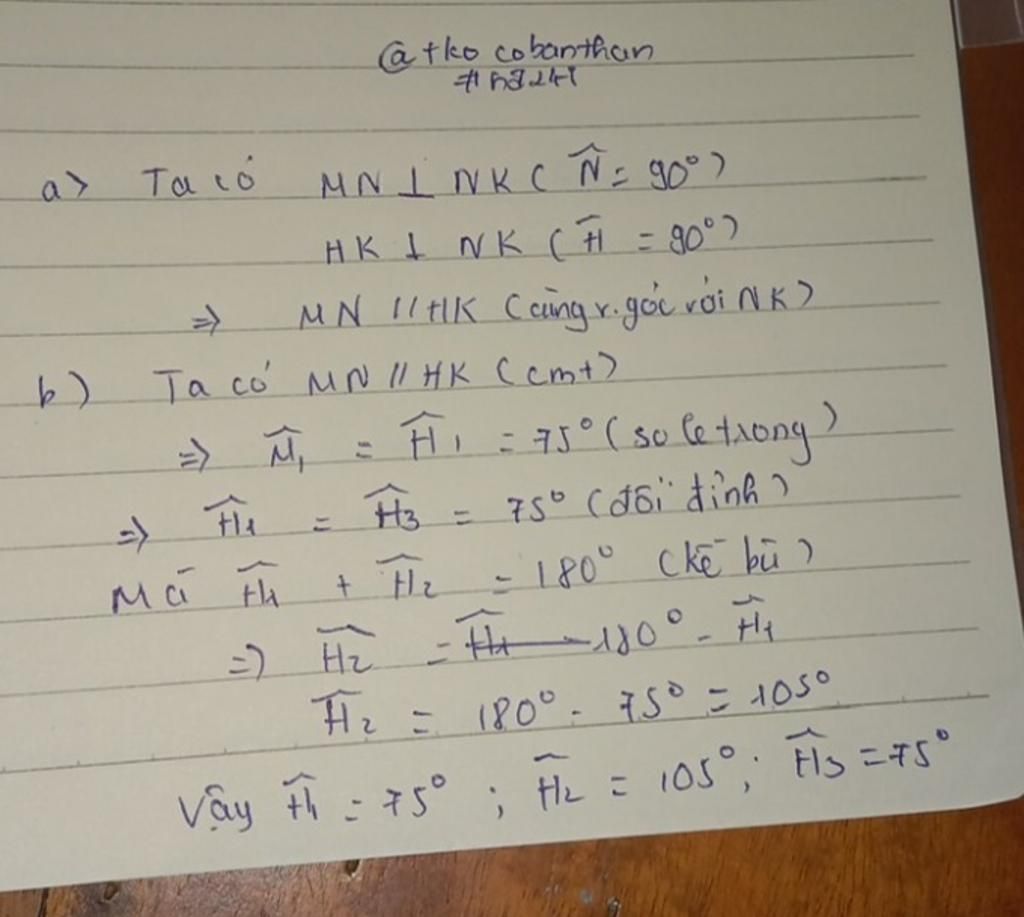 @tko cobanthan
a) Ta có MN ⊥ NK ( N̂ = 90°)
HK ⊥ NK ( Ĥ = 90°)
=> MN // HK (cùng v.góc với NK)
b) Ta có MN // HK (cmt)
=> M̂₁ = Ĥ₁ = 75° (so le trong)
=> Ĥ₁ = Ĥ₃ = 75° (đối đỉnh)
Mà Ĥ₁ + Ĥ₂ = 180° (kề bù)
=> Ĥ₂ = 180° - Ĥ₁
Ĥ₂ = 180° - 75° = 105°
Vậy Ĥ₁ = 75° ; Ĥ₂ = 105° ; Ĥ₃ = 75°